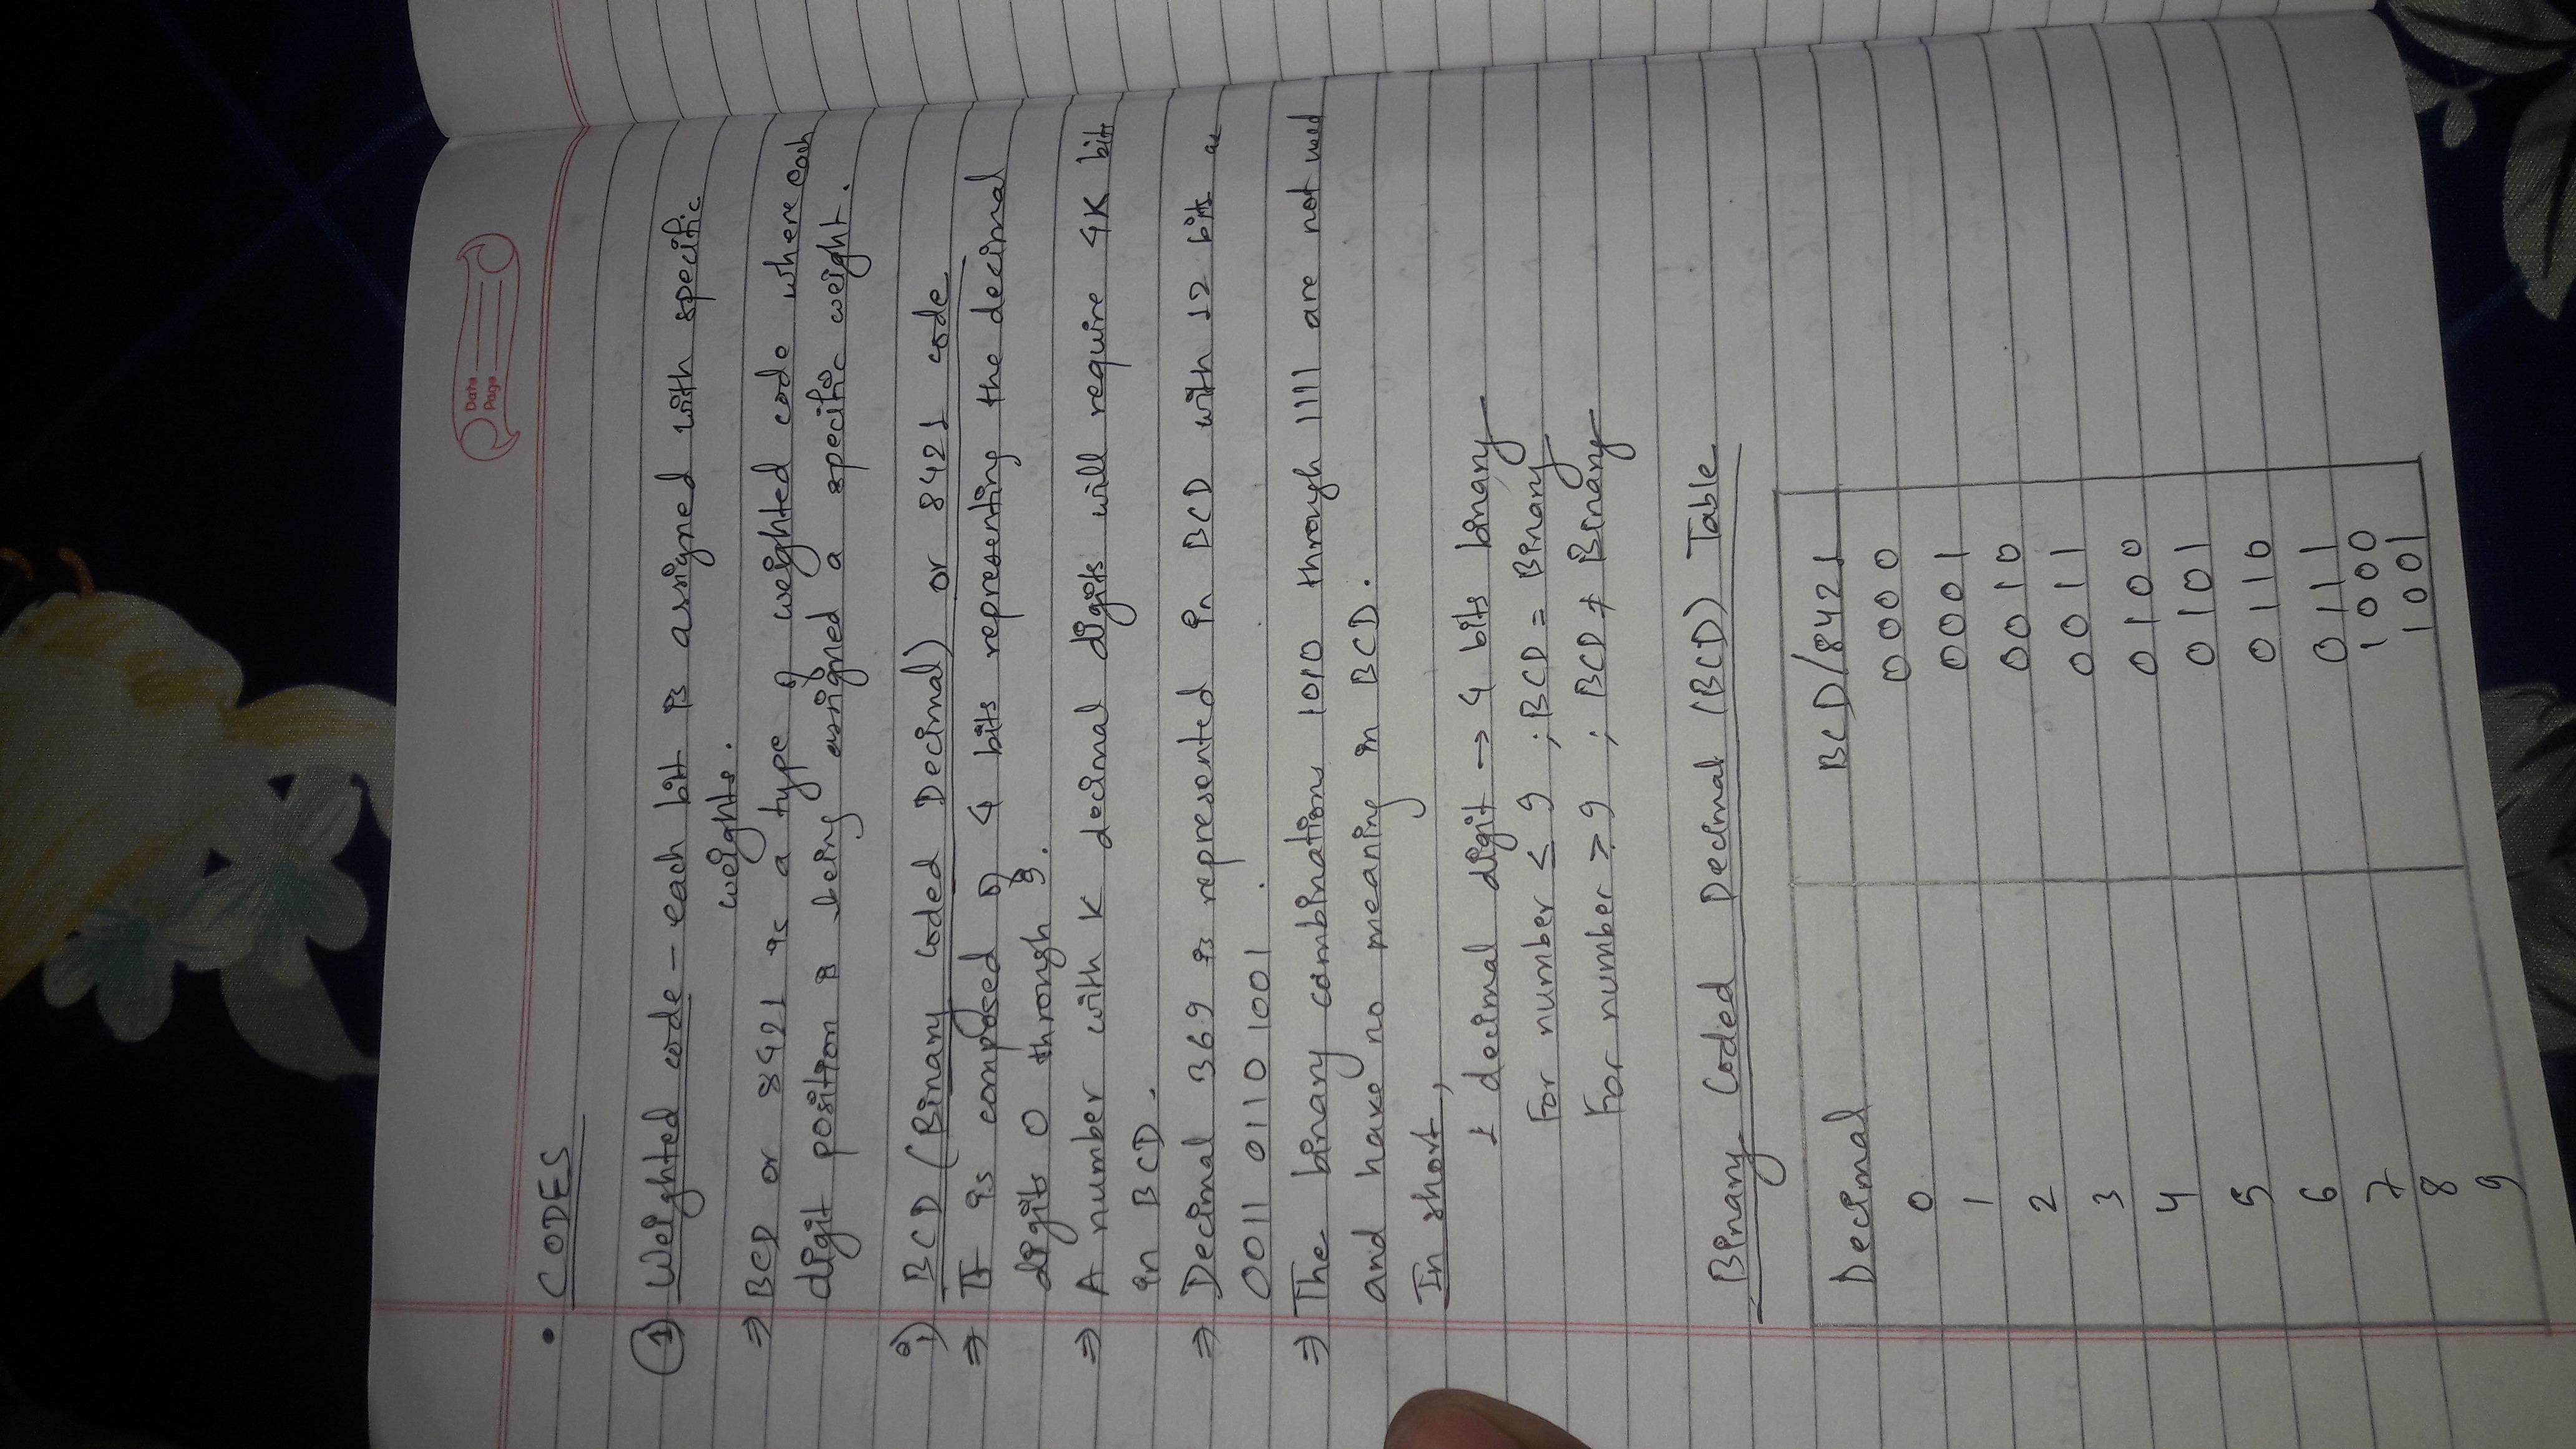 Date
Page
• CODES
① Weighted code - each bit is assigned with specific
weights.
⇒ BCD or 8421 is a type of weighted code where each
digit position is being assigned a specific weight.
i) BCD (Binary Coded Decimal) or 8421 code
⇒ It is composed of 4 bits representing the decimal
digits 0 through 9.
⇒ A number with K decimal digits will require 4K bits
in BCD.
⇒ Decimal 369 is represented in BCD with 12 bits as
0011 0110 1001.
⇒ The binary combinations 1010 through 1111 are not used
and have no meaning in BCD.
In short,
1 decimal digit → 4 bits binary
For number ≤ 9 ; BCD = Binary
For number > 9 ; BCD ≠ Binary
Binary Coded Decimal (BCD) Table
Decimal BCD/8421
0 0000
1 0001
2 0010
3 0011
4 0100
5 0101
6 0110
7 0111
8 1000
9 1001